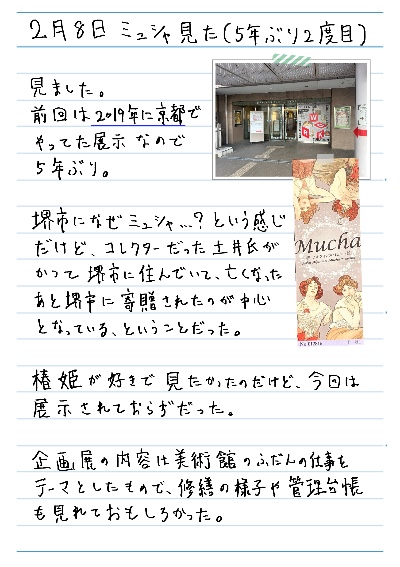 2月8日 ミュシャ見た(5年ぶり2度目)
見ました。
前回は2019年に京都で
やってた展示なので
5年ぶり。
堺市になぜミュシャ…?という感じ
だけど、コレクターだった土井氏が
かつて堺市に住んでいて、亡くなった
あと堺市に寄贈されたのが中心
となっている、ということだった。
Mucha
椿姫が好きで見たかったのだけど、今回は
展示されておらずだった。
企画展の内容は美術館のふだんの仕事を
テーマとしたもので、修繕の様子や管理台帳
も見れておもしろかった。